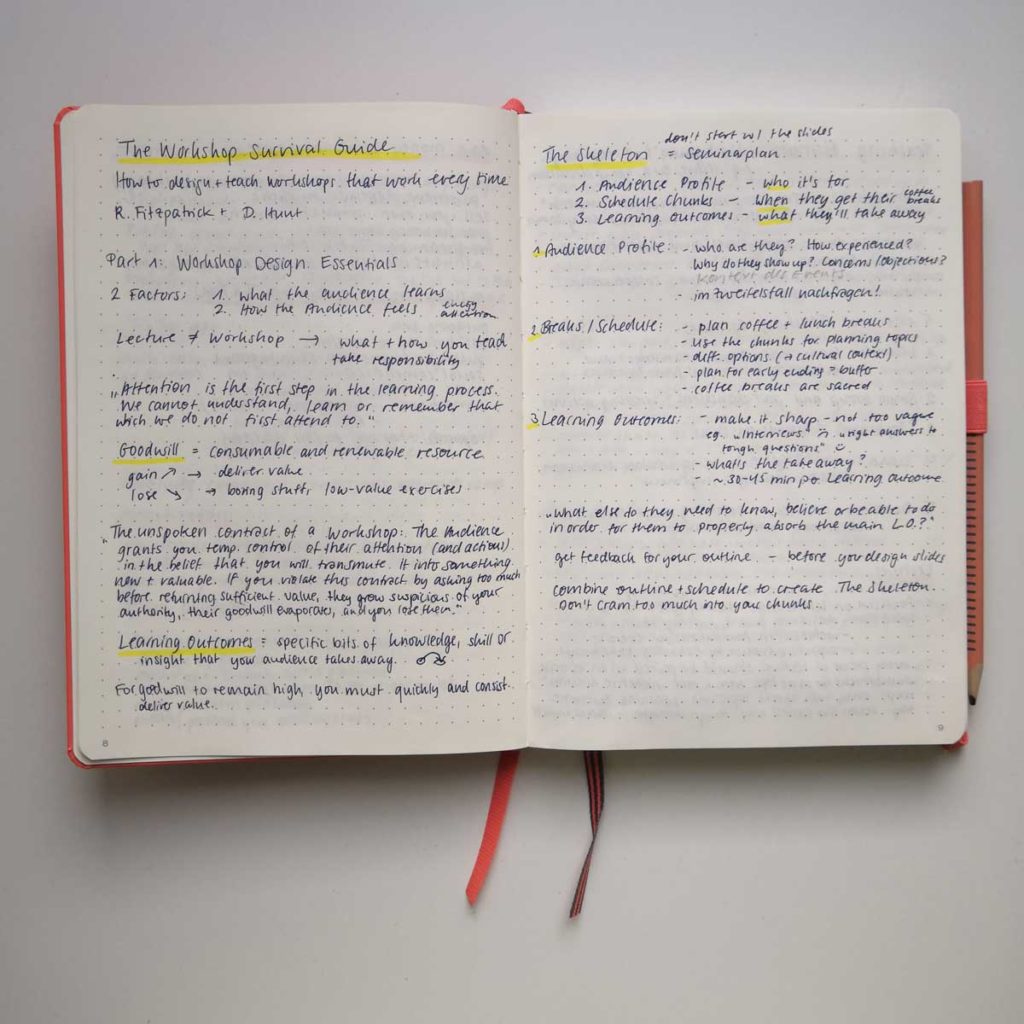 The Workshop Survival Guide
How to design + teach workshops that work every time
R. Fitzpatrick + D. Hunt
Part 1: Workshop Design Essentials
2 Factors: 1. what the audience learns
2. How the Audience feels energy attention
Lecture ≠ Workshop → what + how you teach
take responsibility
„Attention is the first step in the learning process.
We cannot understand, learn or remember that
wich we do not first attend to."
Goodwill = consumable and renewable resource
gain ↗ → deliver value
lose ↘ → boring stuff, low-value exercises
„The unspoken contract of a Workshop: The Audience
grants you temp. control of their attention (and actions)
in the belief that you will transmute it into something
new + valuable. If you violate this contract by asking too much
before returning sufficient value, they grow suspicious of your
authority, their goodwill evaporates, and you lose them."
Learning Outcomes = specific bits of knowledge, skill or
insight that your audience takes away.
For goodwill to remain high you must quickly and consist.
deliver value.
8
don't start w/ the slides
The Skeleton = Seminarplan
1. Audience Profile - who it's for
2. Schedule Chunks - when they get their coffee breaks
3. Learning Outcomes - what they'll take away
1 Audience Profile: - who are they? How experienced?
Why do they show up? Concerns/objections?
Kontext des Events
- im Zweifelsfall nachfragen!
2 Breaks / Schedule: - plan coffee + lunch breaks
- use the chunks for planning topics
- diff. options (→ cultural context)
- plan for early ending = buffer
- coffee breaks are sacred
3 Learning Outcomes: - make it sharp - not too vague
eg. „Interviews" ☹ „right answers to
tough questions" ☺
- what's the take away?
- ~ 30-45 min pro Learning outcome
„What else do they need to know, believe or be able to do
in order for them to properly absorb the main L.O.?"
get feedback for your outline - before you design slides
combine outline + schedule to create The Skeleton.
Don't cram too much into you chunks.
9